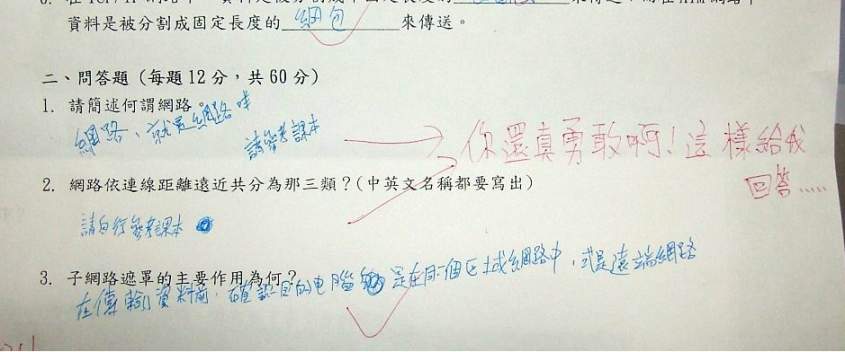 資料是被分割成固定長度的 網包 來傳送。
二、問答題（每題 12 分，共 60 分）
1. 請簡述何謂網路。
網路、就是網路咩
請參考課本
你還真勇敢啊!這樣給我
回答.....
2. 網路依連線距離遠近共分為那三類？(中英文名稱都要寫出)
請自行參考課本
3. 子網路遮罩的主要作用為何？
在傳輸資料前，確認目的電腦 是在同一個區域網路中，或是遠端網路